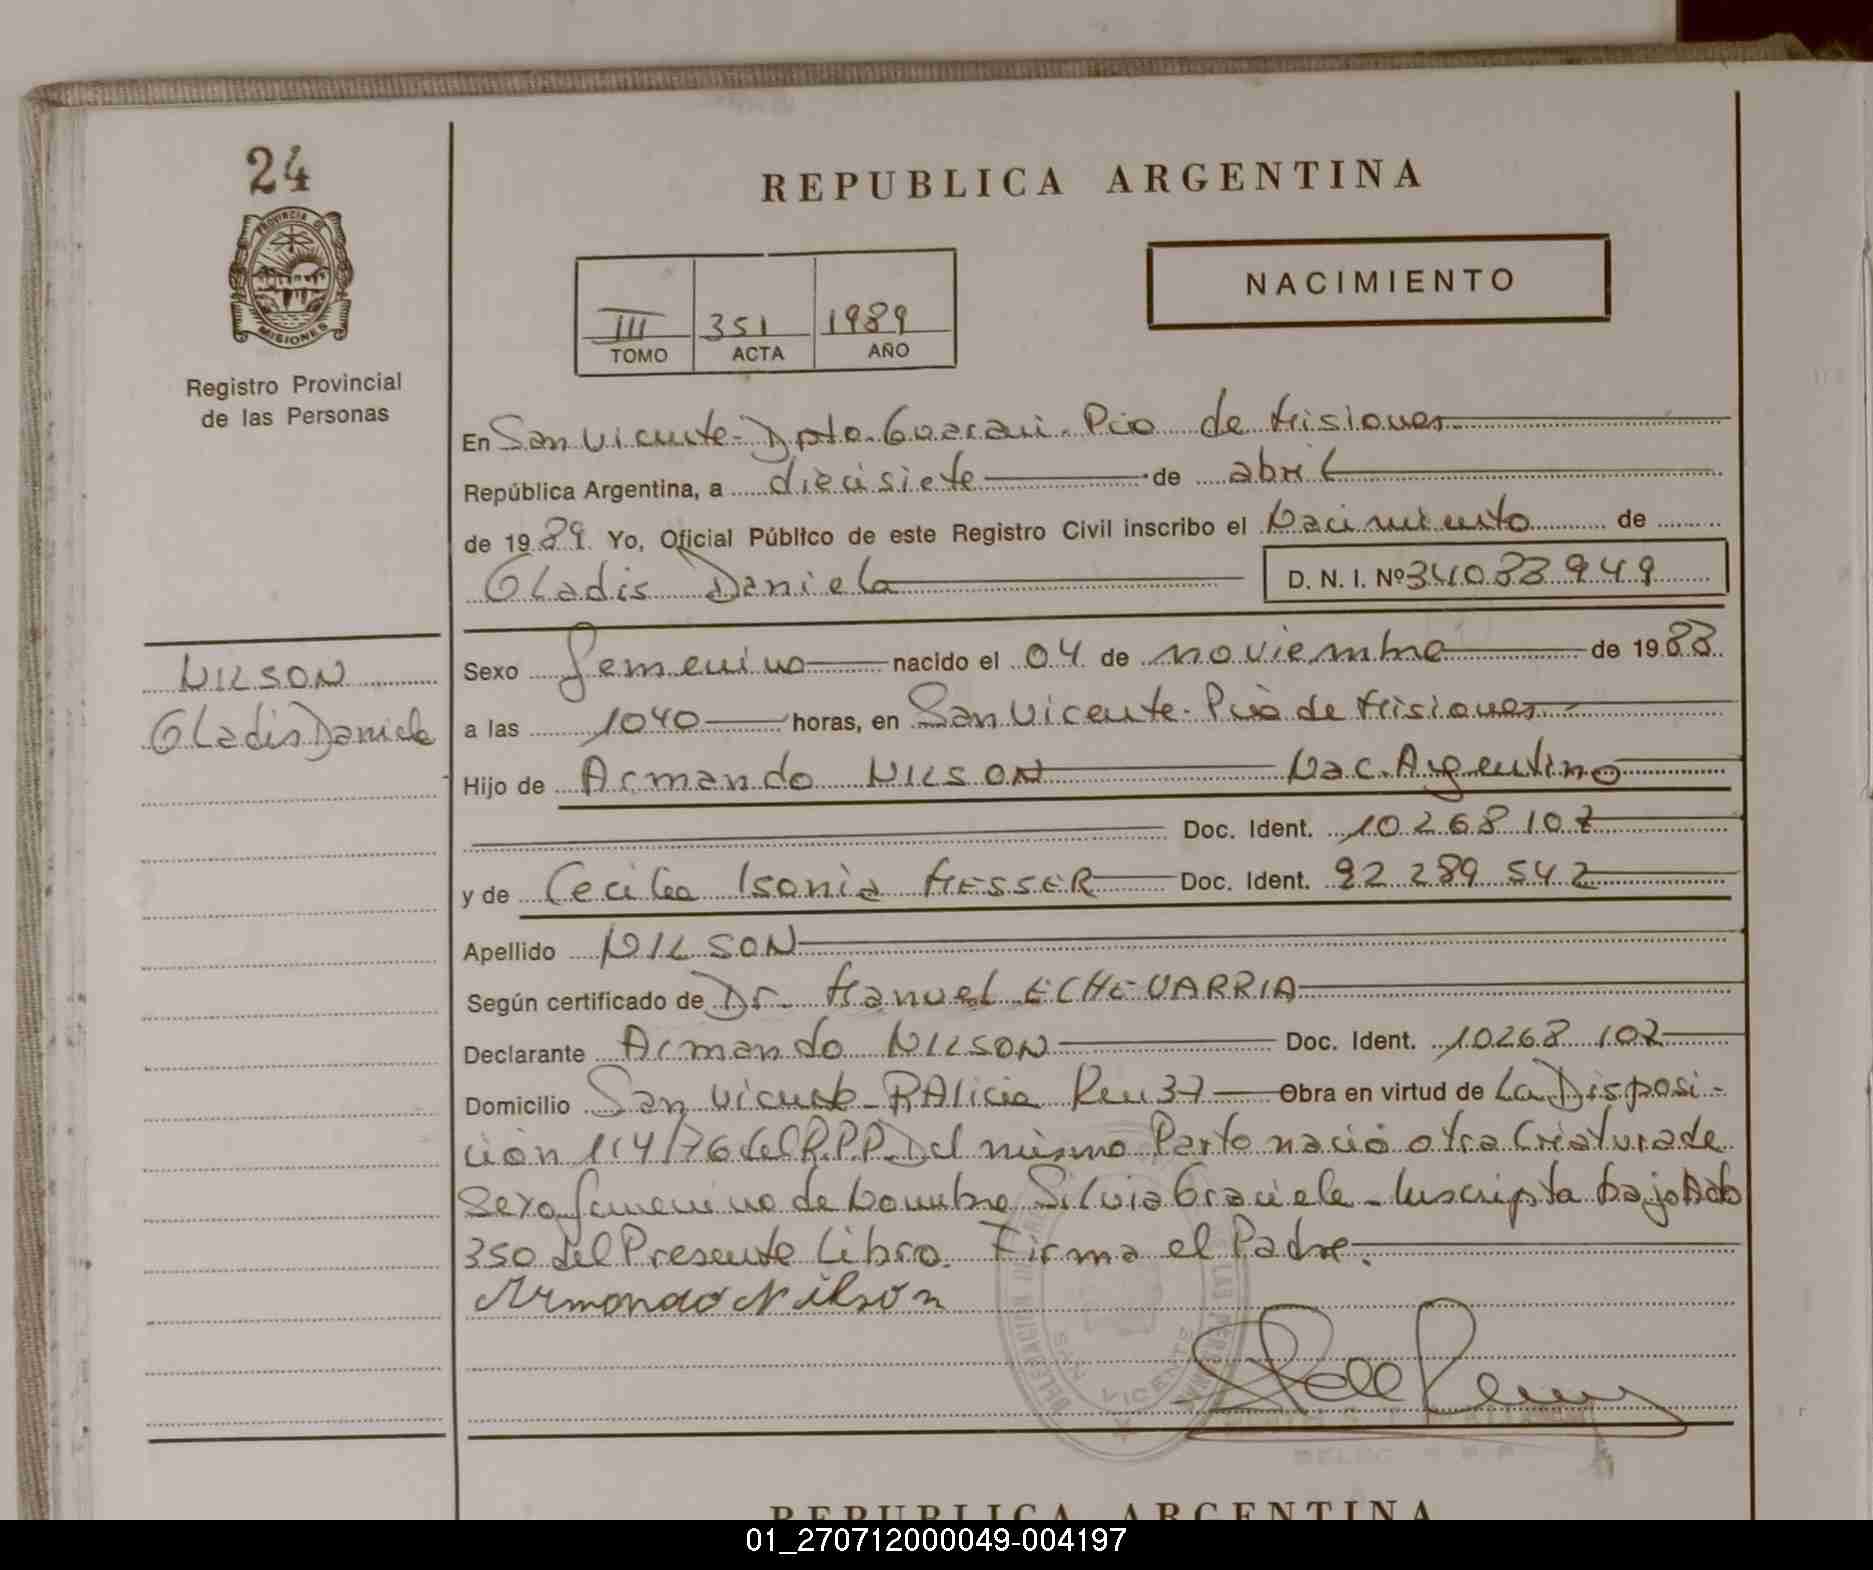 24
PROVINCIA DE
MISIONES
Registro Provincial
de las Personas
NILSON
Gladis Daniela
REPUBLICA ARGENTINA
III 351 1989
TOMO ACTA AÑO
NACIMIENTO
En San Vicente - Dpto. Guarani - Pcia de Misiones
República Argentina, a diecisiete de abril
de 1989 Yo, Oficial Público de este Registro Civil inscribo el Nacimiento de
Gladis Daniela D. N. I. Nº 34083949
Sexo femenino nacido el 04 de noviembre de 1988
a las 1040 horas, en San Vicente - Pcia de Misiones
Hijo de Armando NILSON Nac. Argentino
Doc. Ident. 10268102
y de Cecilia Isonia MESSER Doc. Ident. 92 289 542
Apellido NILSON
Según certificado de Dr. Manuel ECHEVARRIA
Declarante Armando NILSON Doc. Ident. 10268 102
Domicilio San Vicente - P. Alicia Km 37 Obra en virtud de La Disposi-
ción 114/76 del R.P.P. Del mismo Parto nació otra Criatura de
Sexo femenino de Nombre Silvia Graciela - Inscripta bajo Acta
350 del Presente Libro. Firma el Padre.
Armando Nilson
SAN VICENTE
REPUBLICA ARGENTINA
01_270712000049-004197